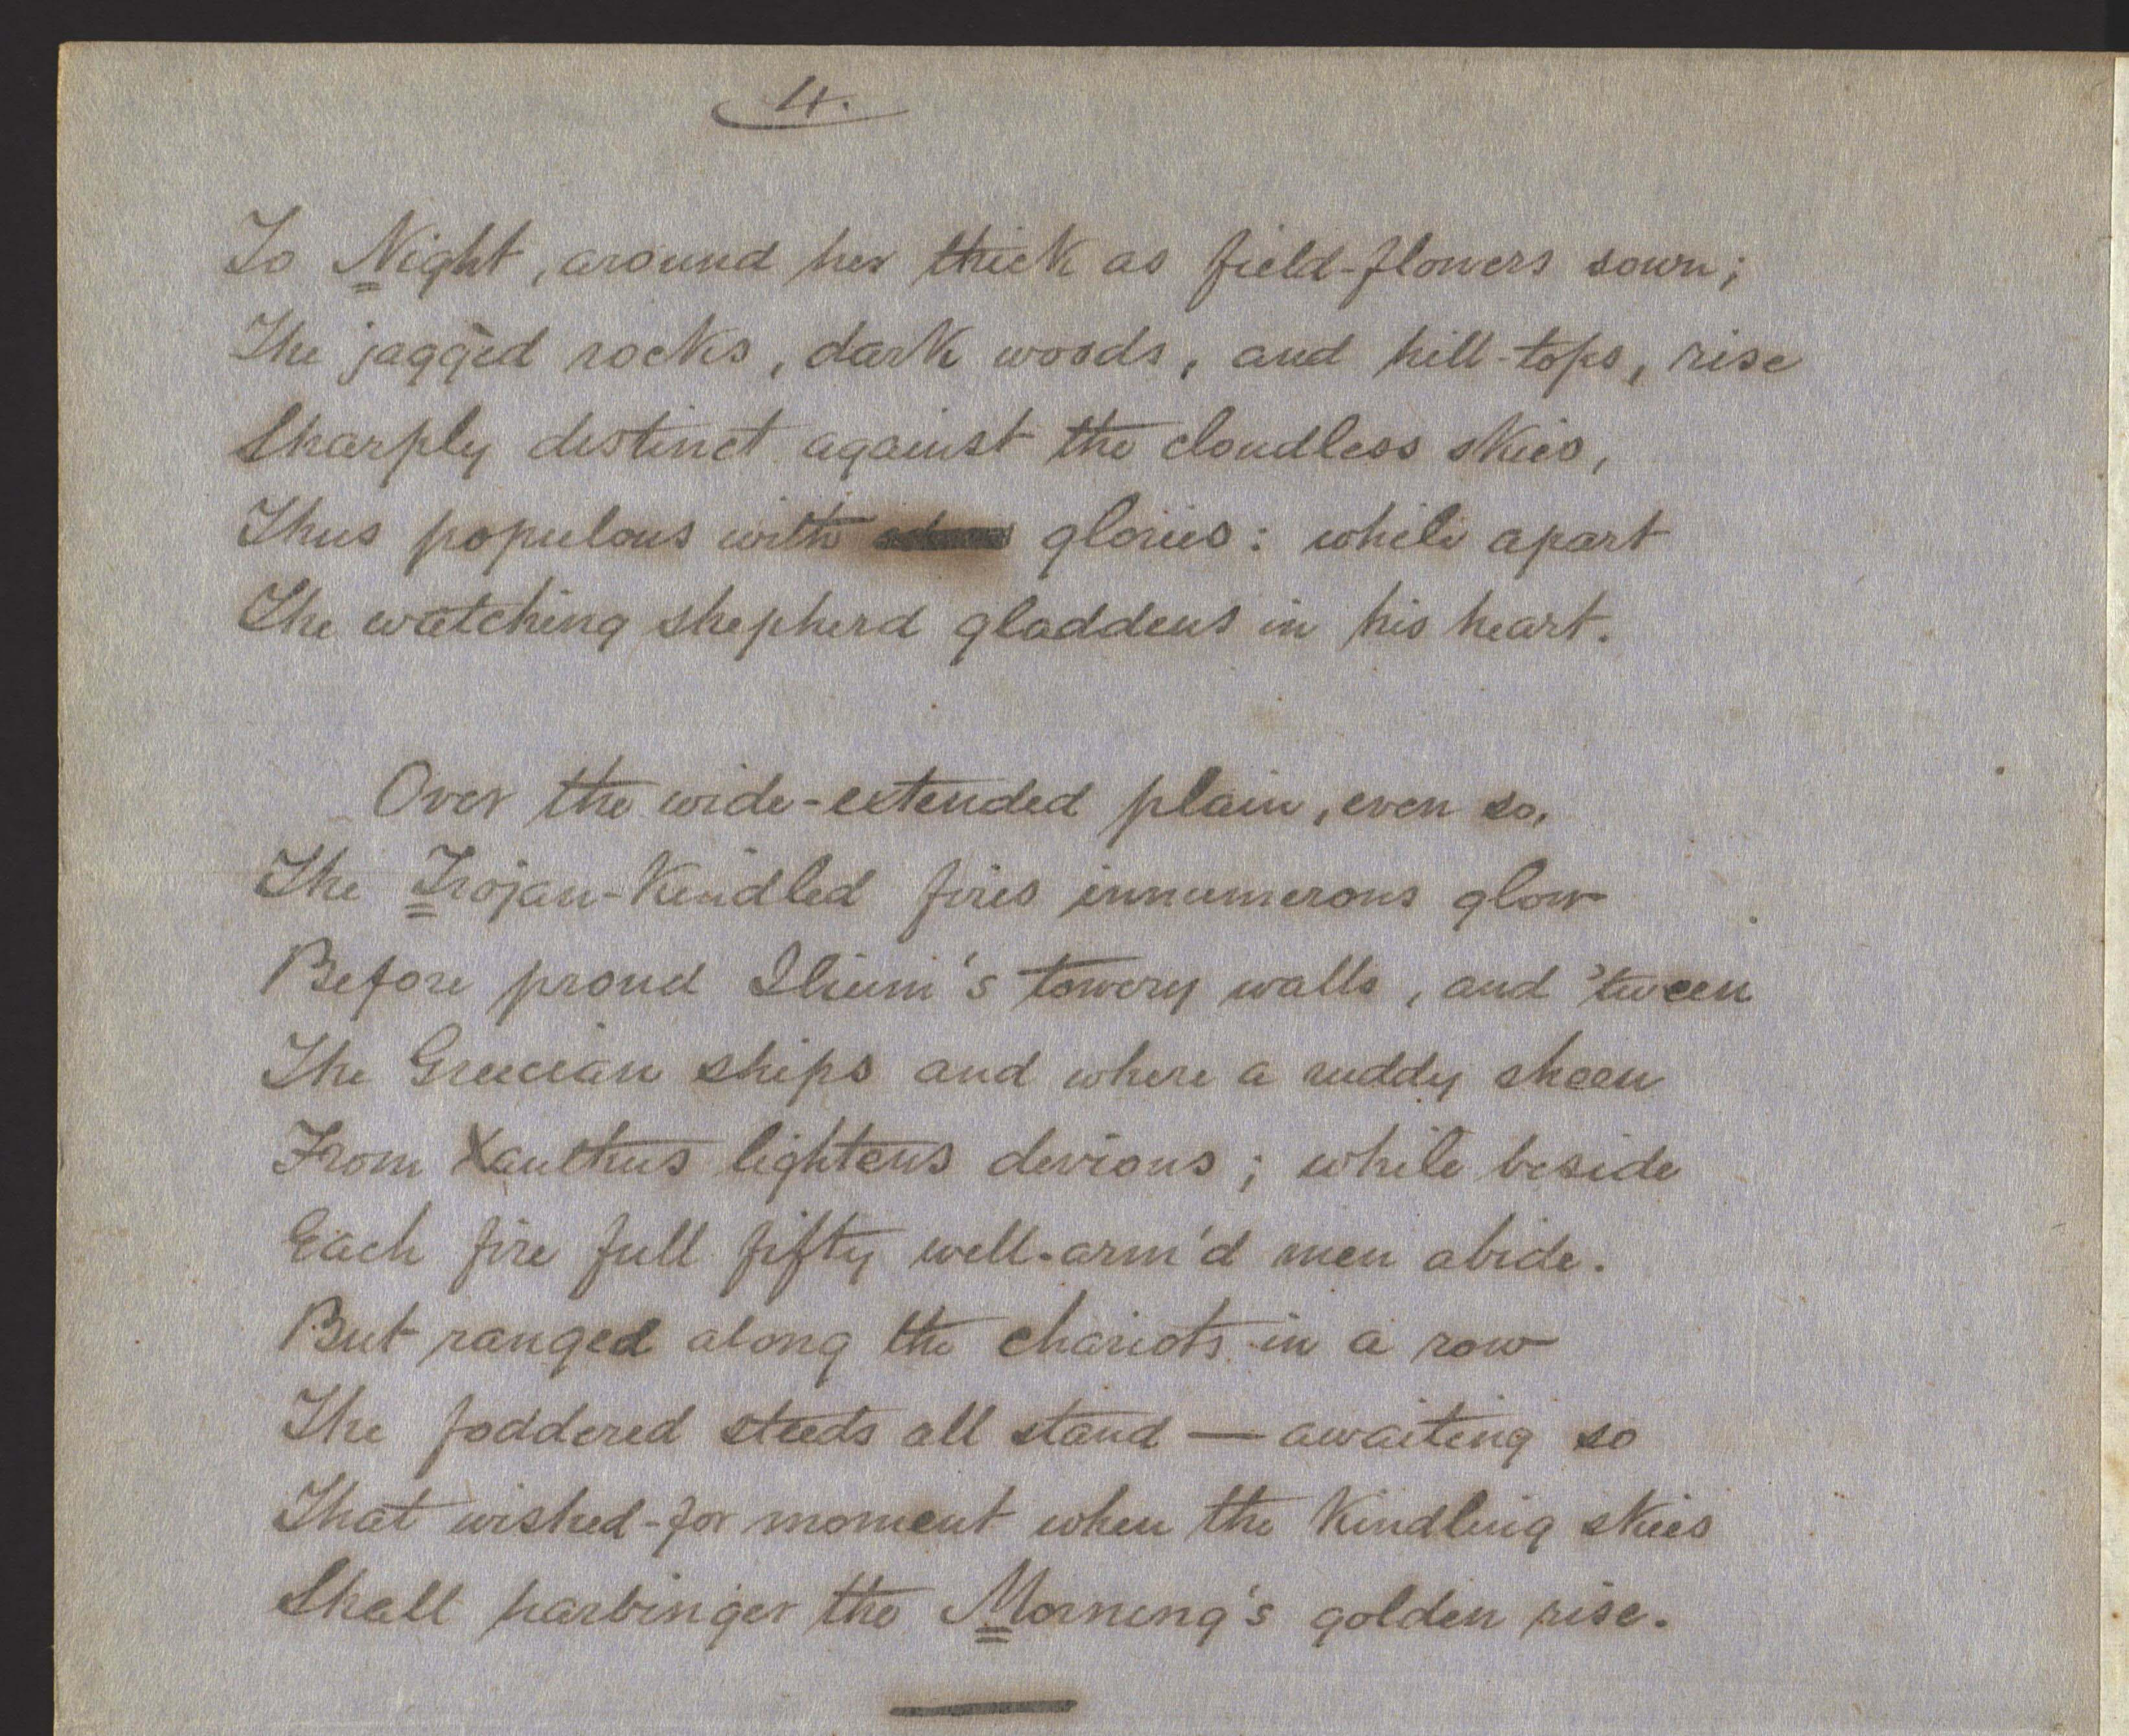 4.
To Night, around her thick as field-flowers sown;
The jaggèd rocks, dark woods, and hill-tops, rise
Sharply distinct against the cloudless skies,
Thus populous with glories: while apart
The watching shepherd gladdens in his heart.
Over the wide-extended plain, even so,
The Trojan-Kindled fires innumerous glow
Before proud Ilium's towery walls, and 'tween
The Grecian ships and where a ruddy sheen
From Xanthus lightens devious; while beside
Each fire full fifty well-arm'd men abide.
But ranged along the chariots in a row
The foddered steeds all stand — awaiting so
That wished-for moment when the Kindling skies
Shall harbinger the Morning's golden rise.